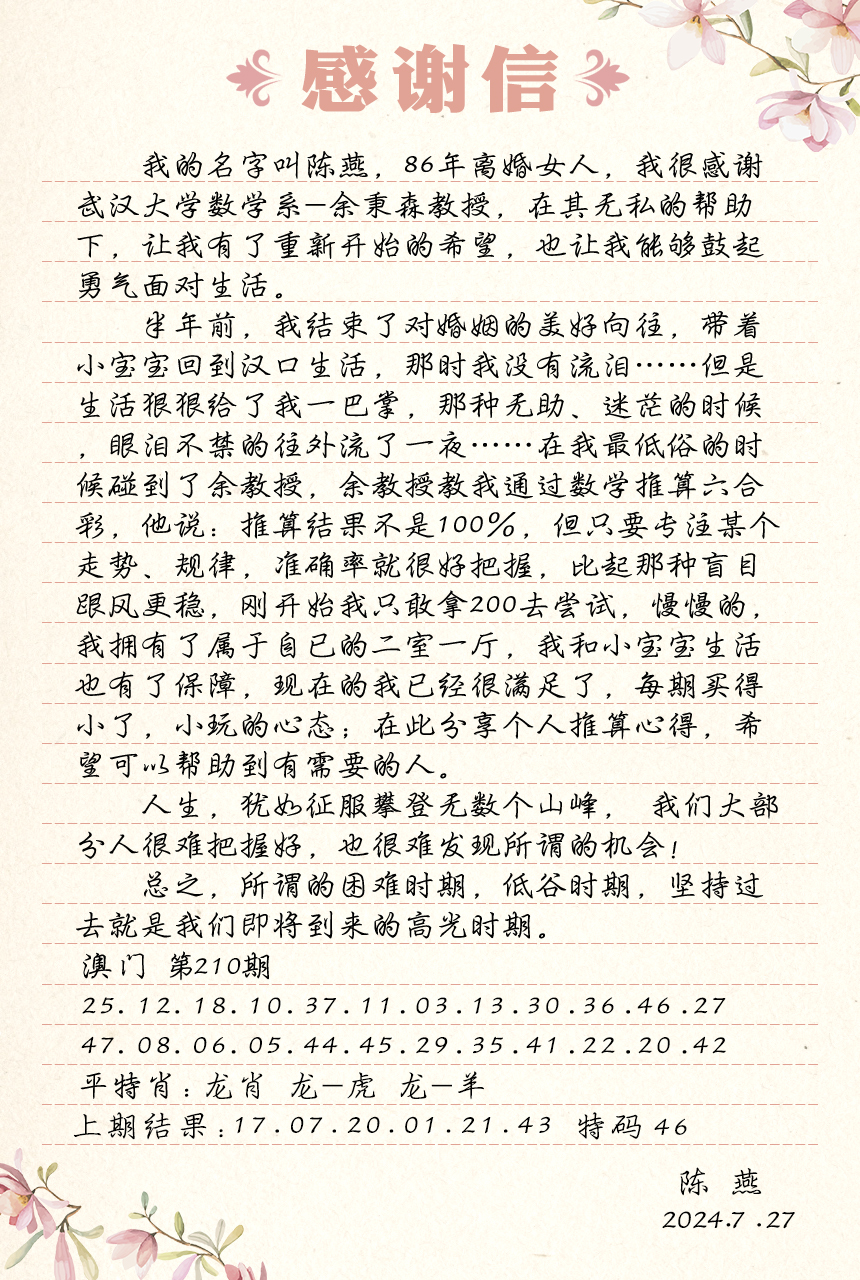 感谢信
我的名字叫陈燕，86年离婚女人，我很感谢
武汉大学数学系—余秉森教授，在其无私的帮助
下，让我有了重新开始的希望，也让我能够鼓起
勇气面对生活。
半年前，我结束了对婚姻的美好向往，带着
小宝宝回到汉口生活，那时我没有流泪……但是
生活狠狠给了我一巴掌，那种无助、迷茫的时候
，眼泪不禁的往外流了一夜……在我最低俗的时
候碰到了余教授，余教授教我通过数学推算六合
彩，他说：推算结果不是100%，但只要专注某个
走势、规律，准确率就很好把握，比起那种盲目
跟风更稳，刚开始我只敢拿200去尝试，慢慢的，
我拥有了属于自已的二室一厅，我和小宝宝生活
也有了保障，现在的我已经很满足了，每期买得
小了，小玩的心态；在此分享个人推算心得，希
望可以帮助到有需要的人。
人生，犹如征服攀登无数个山峰， 我们大部
分人很难把握好，也很难发现所谓的机会！
总之，所谓的困难时期，低谷时期，坚持过
去就是我们即将到来的高光时期。
澳门 第210期
25.12.18.10.37.11.03.13.30.36.46.27
47.08.06.05.44.45.29.35.41.22.20.42
平特肖：龙肖 龙—虎 龙—羊
上期结果：17.07.20.01.21.43 特码 46
陈 燕
2024.7.27